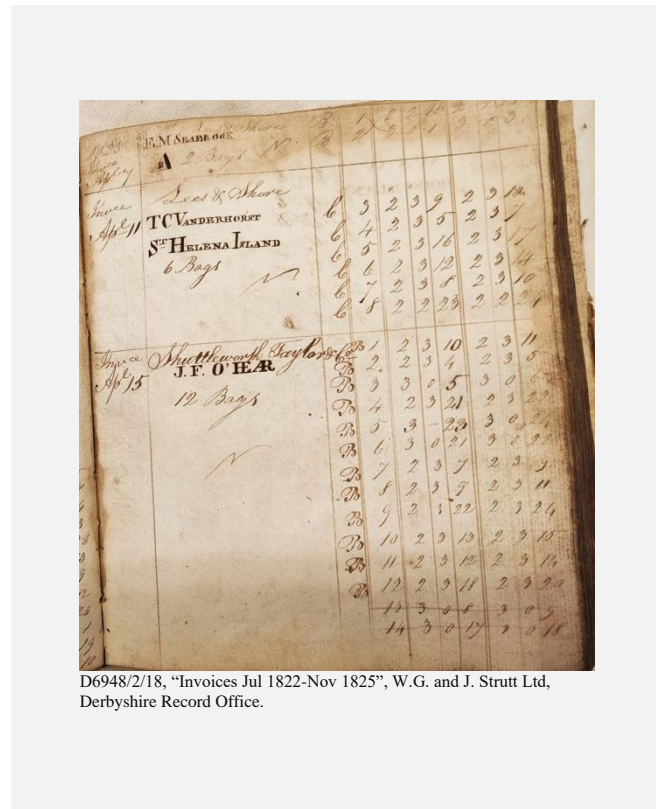 E.M SEABROOK
A 2 Bags N
Invoice Lees & Shore
Apl 11 T C VANDERHORST
ST HELENA ISLAND
6 Bags
N
C 3 2 3 9 2 3
C 4 2 3 5 2 3 7
C 5 2 3 16 2 3 17
C 6 2 3 12 2 3 14
C 7 2 3 8 2 3 10
C 8 2 2 23 2 2
Invoice Shuttleworth Taylor & Co
Apl 15 J. F. O'HEAR
12 Bags
N
B 1 2 3 10 2 3 11
B 2 2 3 4 2 3 5
B 3 3 0 5 3 0
B 4 2 3 21 2 3
B 5 3 - 23 3 0
B 6 3 0 21 3 0
B 7 2 3 7 2 3 9
B 8 2 3 9 2 3 11
B 9 2 3 22 2 3 24
B 10 2 3 13 2 3 15
B 11 2 3 12 2 3 14
B 12 2 3 18 2 3 20
3 0 8 3 0 9
14 3 0 17 3 0 18
D6948/2/18, “Invoices Jul 1822-Nov 1825”, W.G. and J. Strutt Ltd,
Derbyshire Record Office.